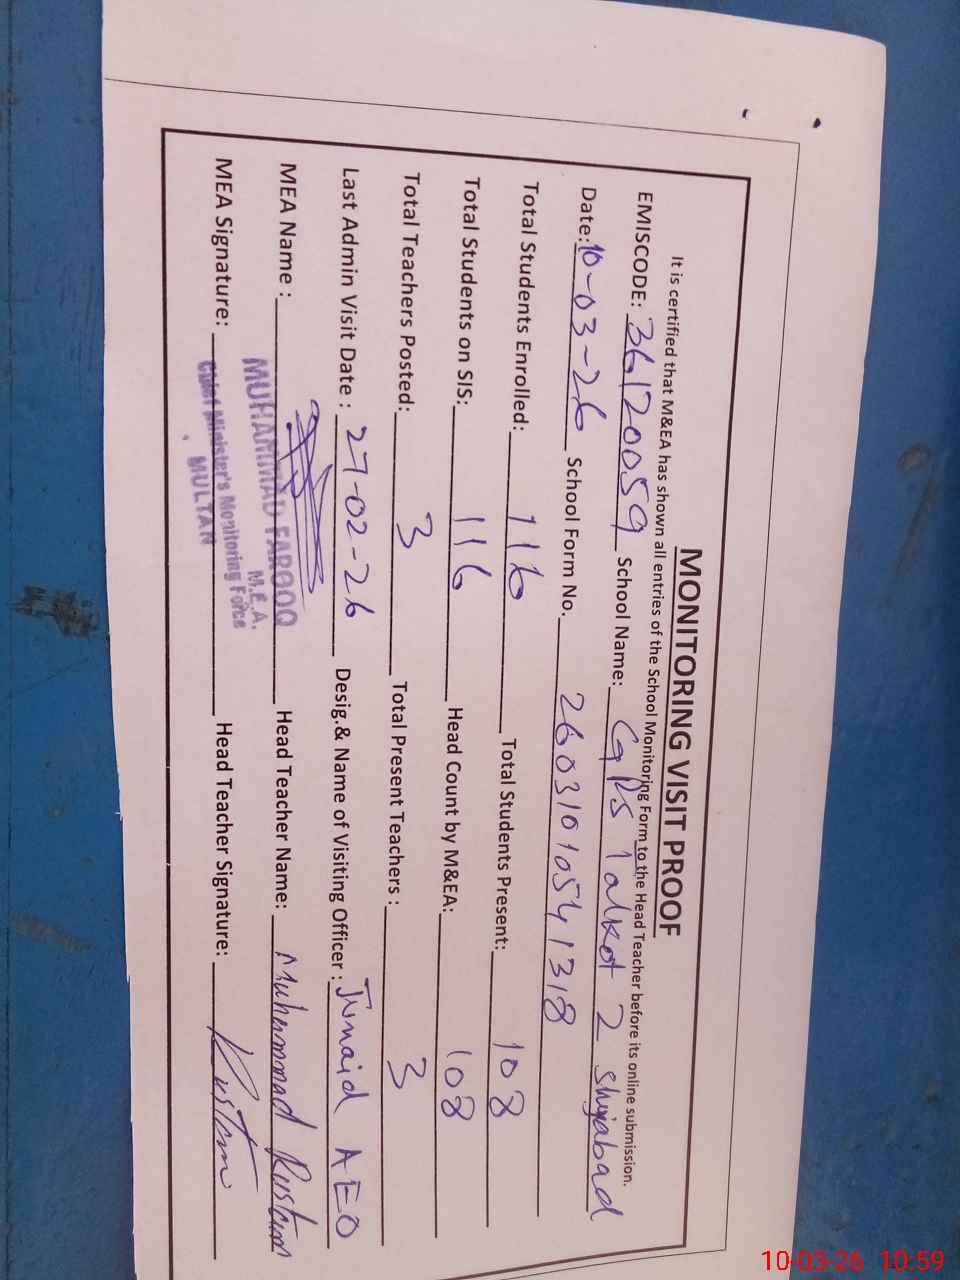 MONITORING VISIT PROOF
It is certified that M&EA has shown all entries of the School Monitoring Form to the Head Teacher before its online submission.
EMISCODE: 36120059 School Name: GPS Talkot 2 Shujabad
Date: 10-03-26 School Form No. 26031010541318
Total Students Enrolled: 116 Total Students Present: 108
Total Students on SIS: 116 Head Count by M&EA: 108
Total Teachers Posted: 3 Total Present Teachers : 3
Last Admin Visit Date : 27-02-26 Desig.& Name of Visiting Officer : Junaid AEO
MEA Name : MUHAMMAD FAROOQ Head Teacher Name: Muhammad Rustam
M.E.A.
MEA Signature: Chief Minister's Monitoring Force Head Teacher Signature: Rustam
MULTAN
10-03-26 10:59